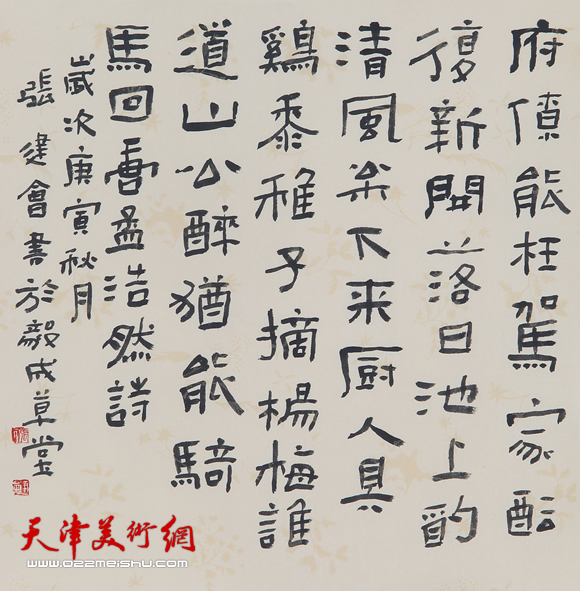 府僚能枉駕家酝
復新開落日池上酌
清風枀下来厨人具
鷄黍稚子摘楊梅誰
道山公醉猶能騎
馬回唐孟浩然詩
歲次庚寅秋月
張建會書於毅成草堂
天津美術網
www.022meishu.com